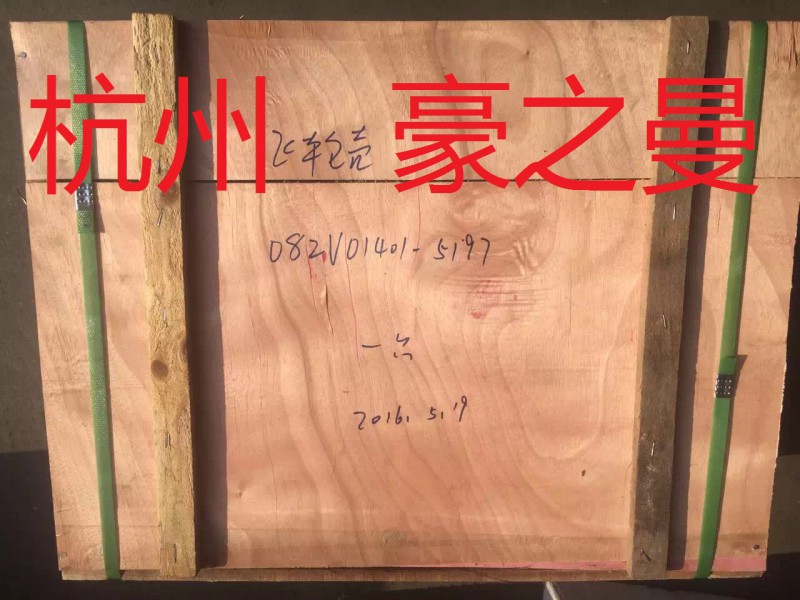 杭州 豪之曼
飞轮壳
082V01401-5197
一台
2016.5.19